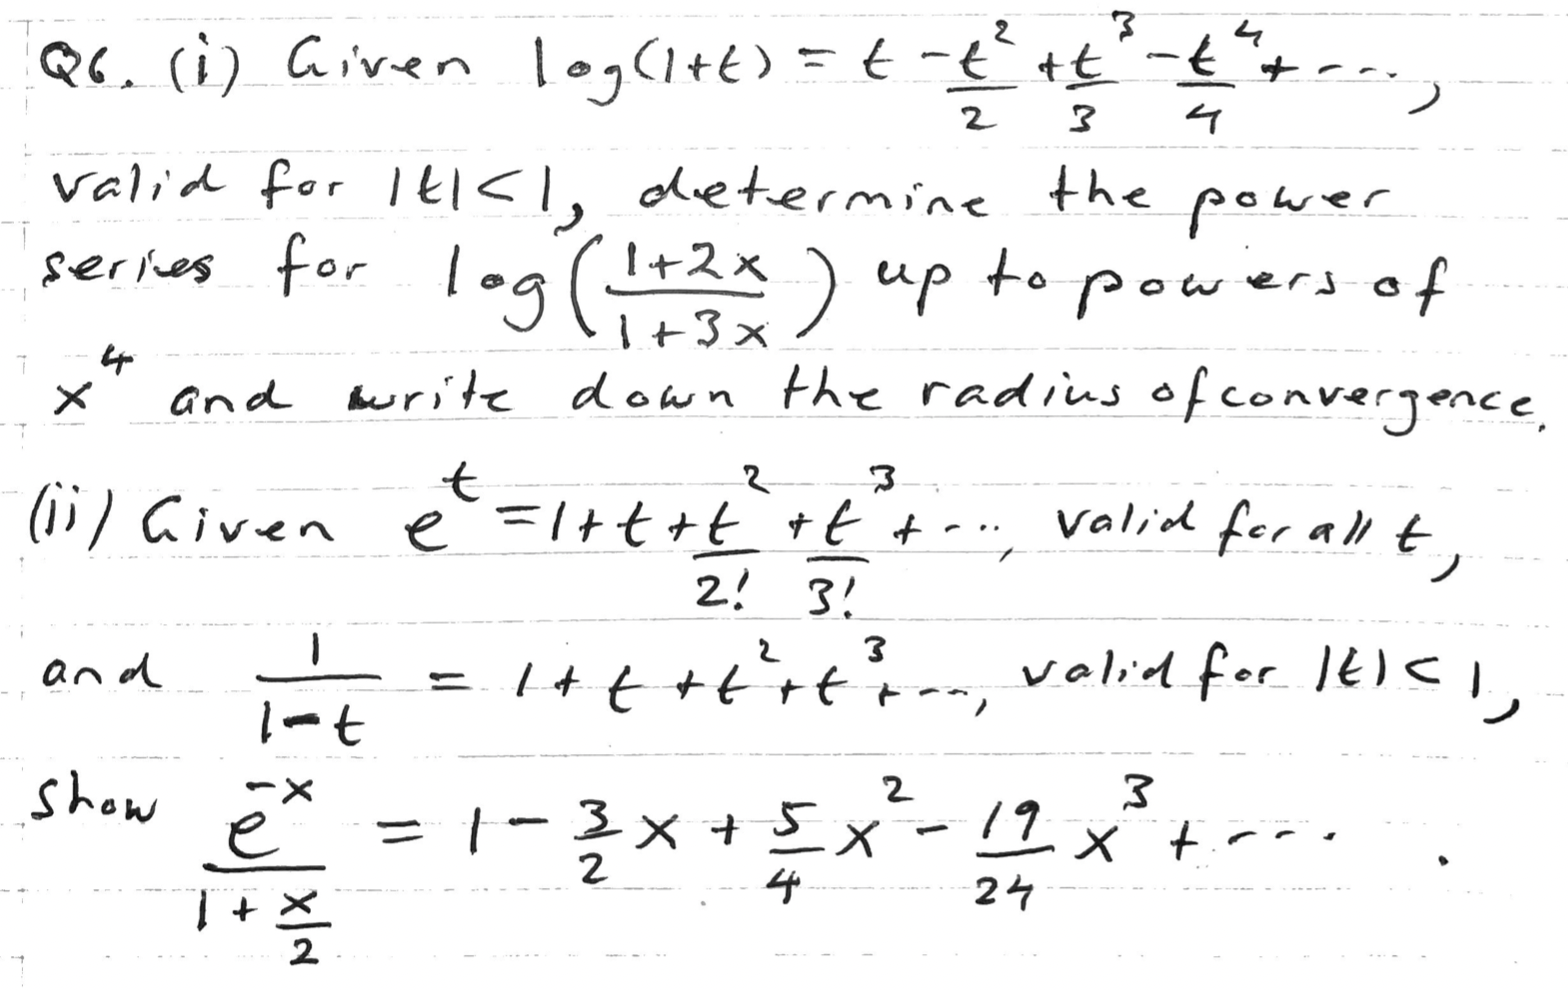 Q6. (i) Given log(1+t) = t - t²/2 + t³/3 - t⁴/4 + ...,
valid for |t|<1, determine the power
series for log((1+2x)/(1+3x)) up to powers of
x⁴ and write down the radius of convergence.
(ii) Given e^t = 1+t+t²/2!+t³/3!+..., valid for all t,
and 1/(1-t) = 1+t+t²+t³+..., valid for |t|<1,
show e^(-x)/(1+x/2) = 1 - 3/2 x + 5/4 x² - 19/24 x³ + ... .